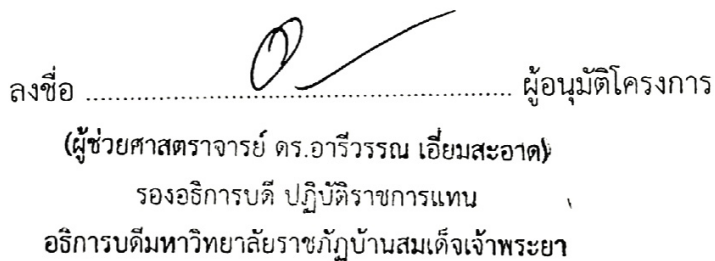 ลงชื่อ ........................................................ ผู้อนุมัติโครงการ
(ผู้ช่วยศาสตราจารย์ ดร.อารีวรรณ เอี่ยมสะอาด)
รองอธิการบดี ปฏิบัติราชการแทน
อธิการบดีมหาวิทยาลัยราชภัฏบ้านสมเด็จเจ้าพระยา